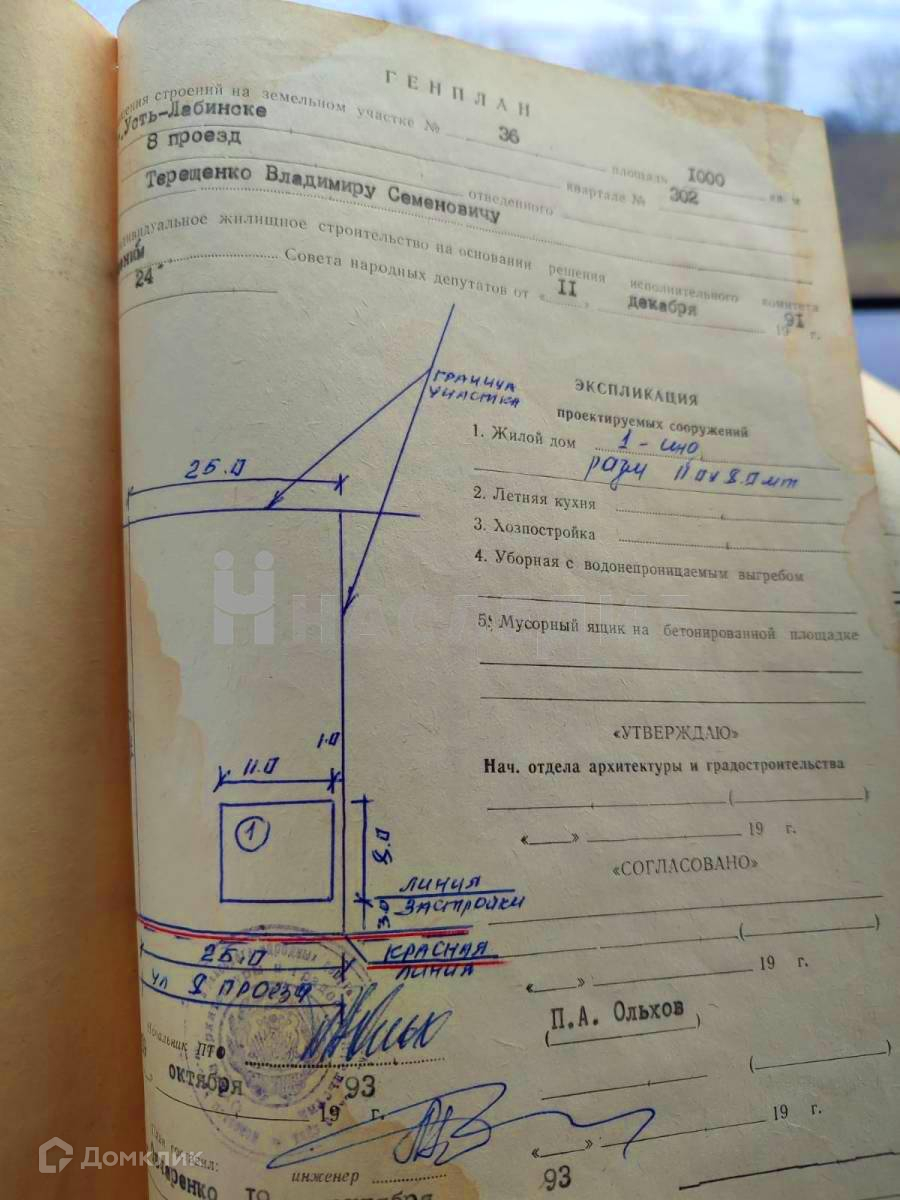 ГЕНПЛАН
строений на земельном участке № 36 площадь 1000 кв. м
г. Усть-Лабинске
8 проезд квартале № 302
отведенного
Терещенко Владимиру Семеновичу
индивидуальное жилищное строительство на основании решения исполнительного комитета
24 Совета народных депутатов от « 11 » декабря 19 91 г.
ГРАНИЦА
УЧАСТКА
25.0
ЭКСПЛИКАЦИЯ
проектируемых сооружений
1. Жилой дом 1 -
разм 11.0х8.0 мт
2. Летняя кухня
3. Хозпостройка
4. Уборная с водонепроницаемым выгребом
5. Мусорный ящик на бетонированной площадке
НАСЛЕДИЕ
1.0
11.0
1
8.0
3.0
ЛИНИЯ
ЗАСТРОЙКИ
КРАСНАЯ
ЛИНИЯ
25.0
УЛ 8 ПРОЕЗД
«УТВЕРЖДАЮ»
Нач. отдела архитектуры и градостроительства
( )
« » 19 г.
«СОГЛАСОВАНО»
( )
« » 19 г.
П.А. Ольхов
( )
Начальник ПТО
октября 93
19 г.
( )
« » 19 г.
План составил:
инженер
октября 93
Домклик